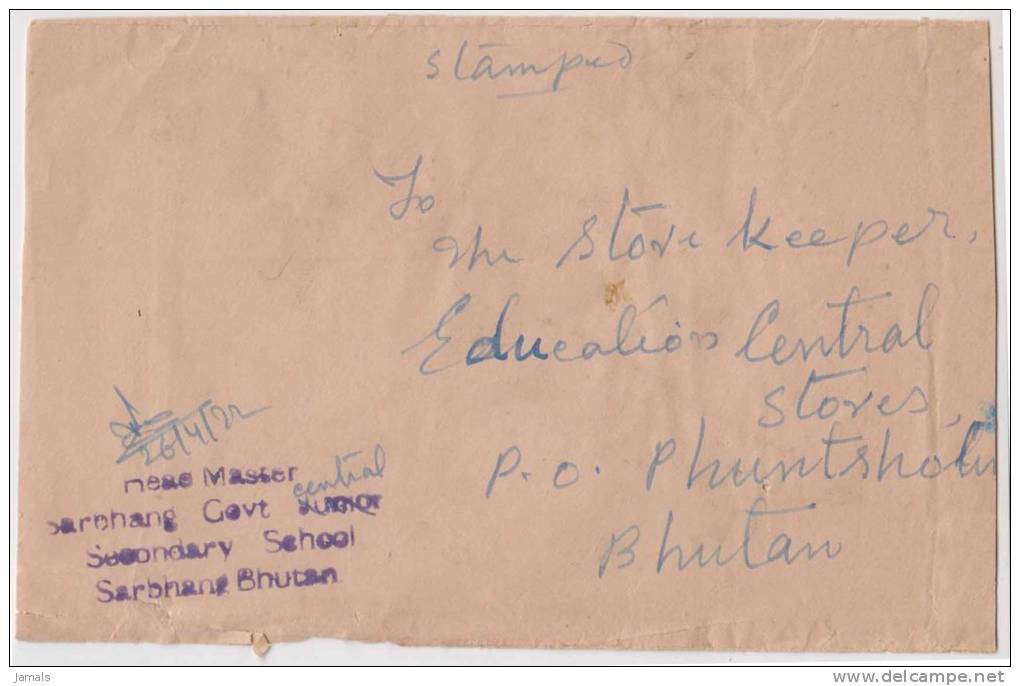 stamped
To
The Store Keeper,
Education Central
Stores,
P.O. Phuntsholin
Bhutan
26/4/72
Head Master
central
Sarbhang Govt Junior
Secondary School
Sarbhang Bhutan
Jamals
delcampe.net